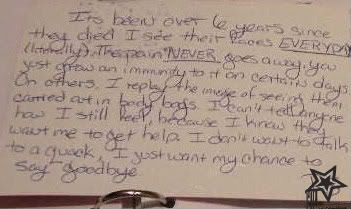 Its been over 6 years since
they died I see their faces EVERYDAY
(literally). The pain NEVER goes away, you
just grow an immunity to it on certain days.
On others. I replay the image of seeing them
carried out in body bags. I can't tell anyone
how I still feel, because I know they
want me to get help. I don't want to talk
to a quack, I just want my chance to
say goodbye